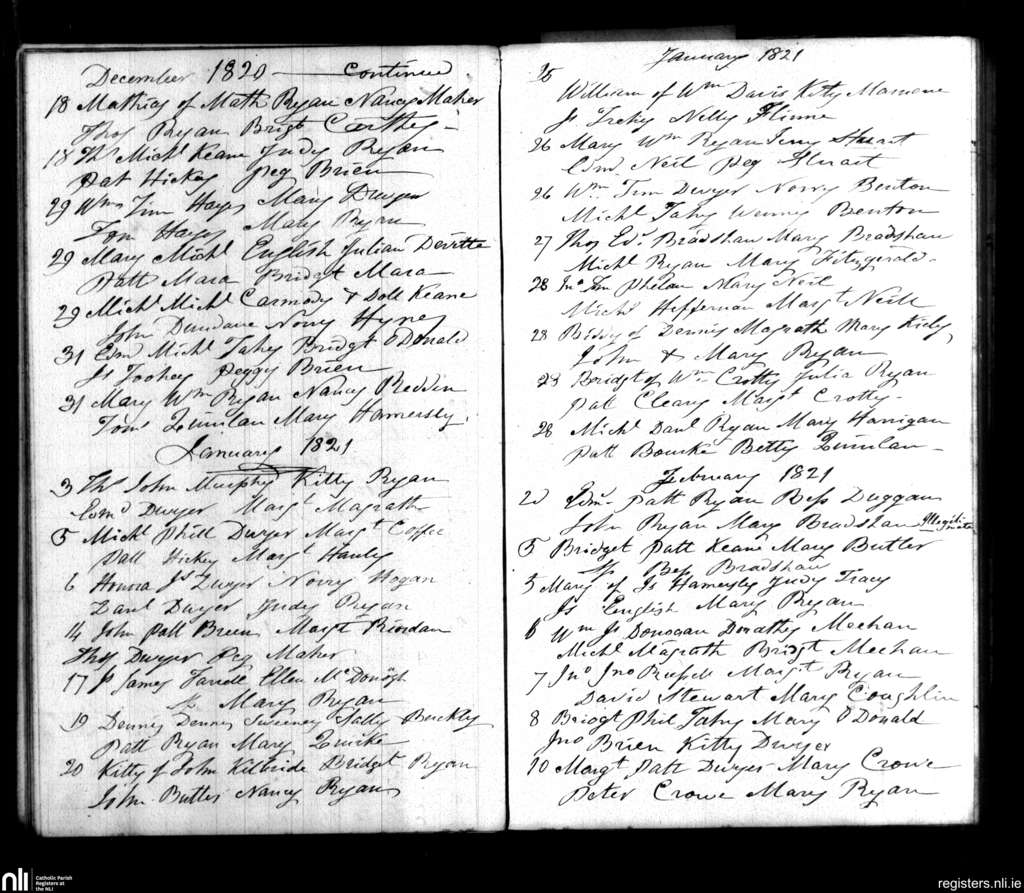 December 1820 — Continued
18 Mathias of Math Ryan Nancy Maher
Thos Ryan Bridgt Carthy -
18 Ths Michl Keane Judy Ryan
Pat Hickey Peg Brien
29 Wm Tim Hayes Mary Dwyer
Tom Hayes Mary Ryan
29 Mary Michl English Julian
Patt Mara Bridgt Mara
29 Michl Michl Carmody & Doll Keane
John Dundane Norry Hynes
31 Edm Michl Tahy Bridgt O Donald
Js Toohey Peggy Brien
31 Mary Wm Ryan Nancy Reddin
Toms Quinlan Mary Hamersly
January 1821
3 Ths John Murphy Kitty Ryan
Edmd Dwyer Margt Magrath
5 Michl Phill Dwyer Margt Coffee
Patt Hickey Margt Hanly
6 Honora Js Dwyer Norry Hogan
Danl Dwyer Judy Ryan
14 John Patt Breen Margt Riordan
Thos Dwyer Peg Maher
17 James Ellen McDonogh
Mary Ryan
19 Dennis Dennis Sweeney Sally Buckley
Patt Ryan Mary Quirke
20 Kitty of John Kilbride Bridget Ryan
John Butler Nancy Ryan
January 1821
25
William of Wm Davis Kitty
Js Nelly Flinne
26 Mary Wm Ryan Jenny Stuart
Edmd Neil Peg Stuart
26 Wm Tim Dwyer Norry Benton
Michl Tahy Winny Benton
27 Thos Edd Bradshaw Mary Bradshaw
Michl Ryan Mary Fitzgerald -
28 Phelan Mary Neil
Michl Heffernan Margt Neill
28 Biddy of Dennis Magrath Mary Kiely
John & Mary Ryan
28 Bridgt of Wm Crotty Julia Ryan
Pat Cleary Margt Crotty -
28 Michl Danl Ryan Mary Hanigan
Patt Bourke Betty Quinlan -
February 1821
2d Edmd Patt Ryan Bess Duggan
John Ryan Mary Bradshaw Illegitimate
5 Bridget Patt Keane Mary Butler
Bess Bradshaw
5 Mary of Js Hamersley Judy Tracy
Js English Mary Ryan
6 Wm Js Donovan Dorathy Meehan
Michl Magrath Bridgt Meehan
7 Jno Jno Russell Margt Ryan
David Stewart Mary Coughlin
8 Bridgt Phil Tahy Mary O Donald
Jno Brien Kitty Dwyer
10 Margt Patt Dwyer Mary Crowe
Peter Crowe Mary Ryan
nli
Catholic Parish
Registers at
the NLI
registers.nli.ie